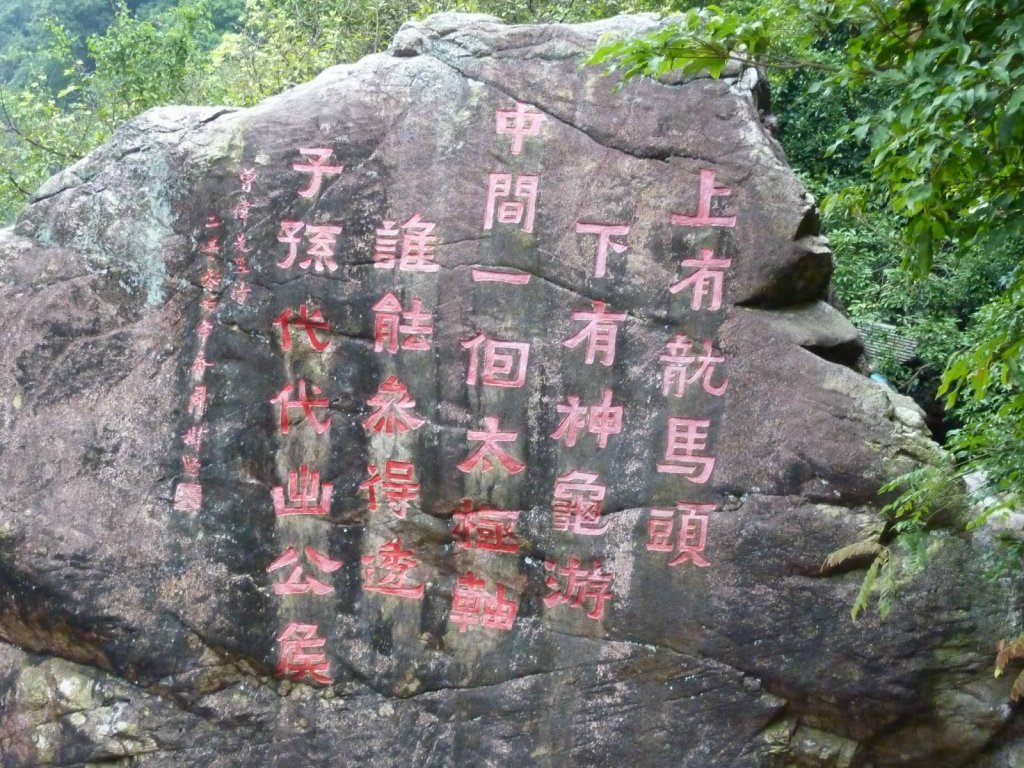 上有龍馬頭
下有神龜游
中間一個太極軸
誰能參得透
子孫代代出公侯
曾偉先生詩